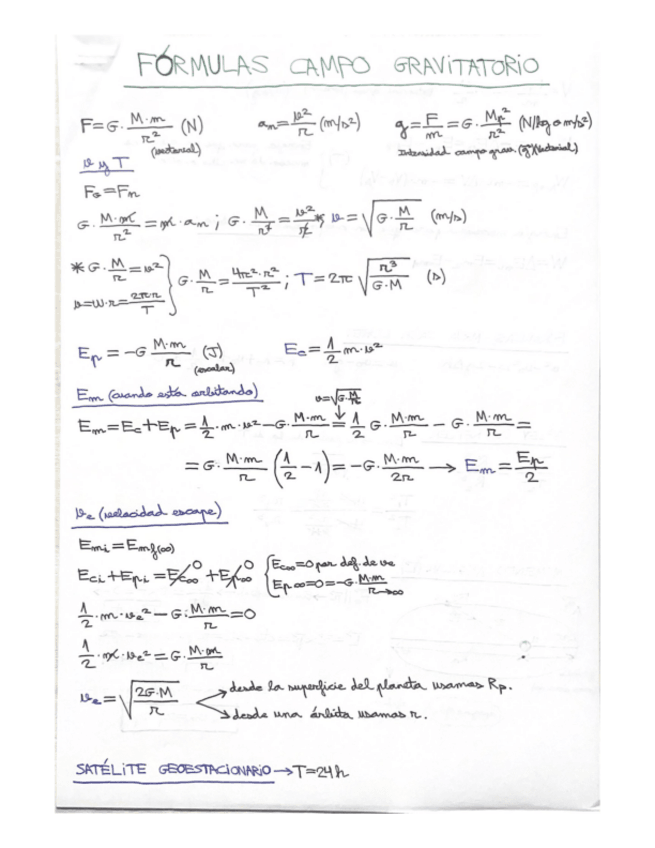 FÓRMULAS CAMPO GRAVITATORIO
F = G · M·m / r² (N)    aₙ = v² / r (m/s²)    g = F / m = G · Mp² / r² (N/kg o m/s²)
(vectorial)    Intensidad campo grav. (g) (Vectorial)
v y T
F_G = Fₙ
G · M·m / r² = m · aₙ ; G · M / r² = v² / r * v = √(G · M / r) (m/s)
* G · M / r = v²
v = w · r = 2πr / T } G · M / r = 4π²·r² / T² ; T = 2π √(r³ / G·M) (s)
Ep = -G M·m / r (J)    Ec = 1/2 m·v²
(escalar)
Em (cuando está orbitando)
v = √(G·M / r)
Em = Ec + Ep = 1/2 · m · v² - G · M·m / r = 1/2 G · M·m / r - G · M·m / r =
= G · M·m / r (1/2 - 1) = -G · M·m / 2r → Em = Ep / 2
vₑ (velocidad escape)
Em i = Em f(∞)
Ec i + Ep i = Ec∞ 0 + Ep∞ 0 { Ec∞ = 0 por def. de ve
Ep ∞ = 0 = -G · M·m / r→∞
1/2 · m · vₑ² - G · M·m / r = 0
1/2 · m · vₑ² = G · M·m / r
vₑ = √(2G·M / r) → desde la superficie del planeta usamos Rp.
→ desde una órbita usamos r.
SATÉLITE GEOESTACIONARIO → T = 24h